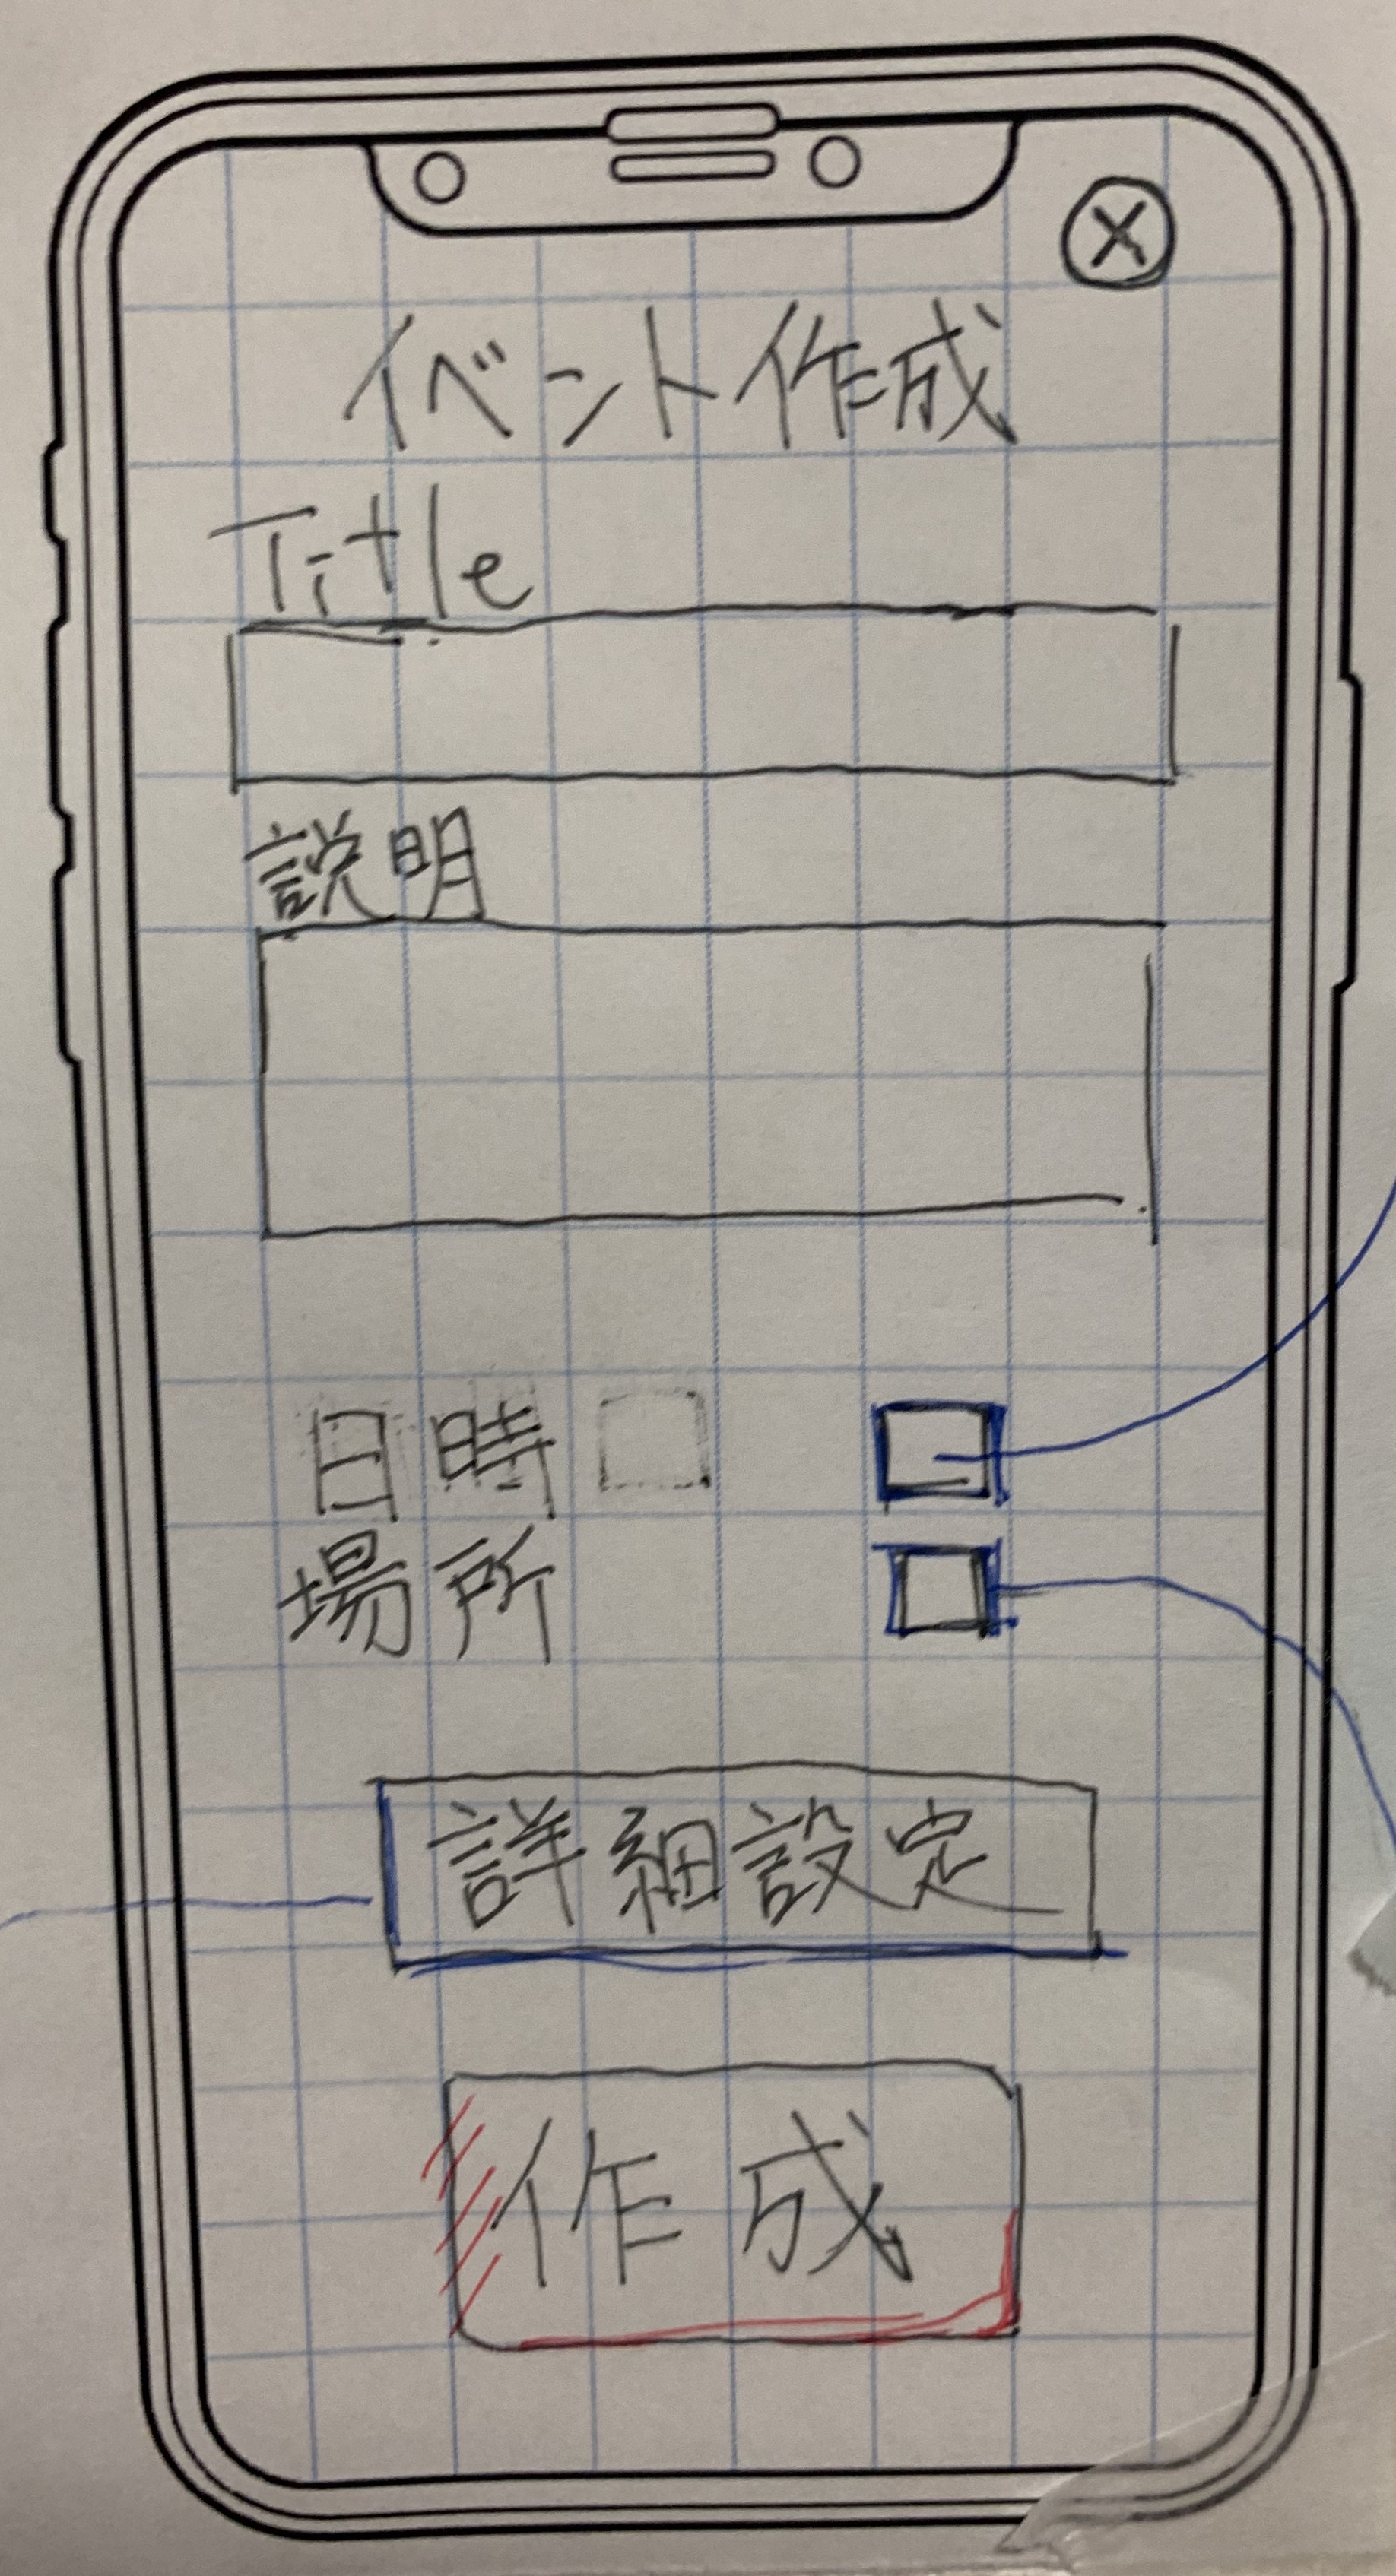 イベント作成
Title
説明
日時
場所
詳細設定
作成